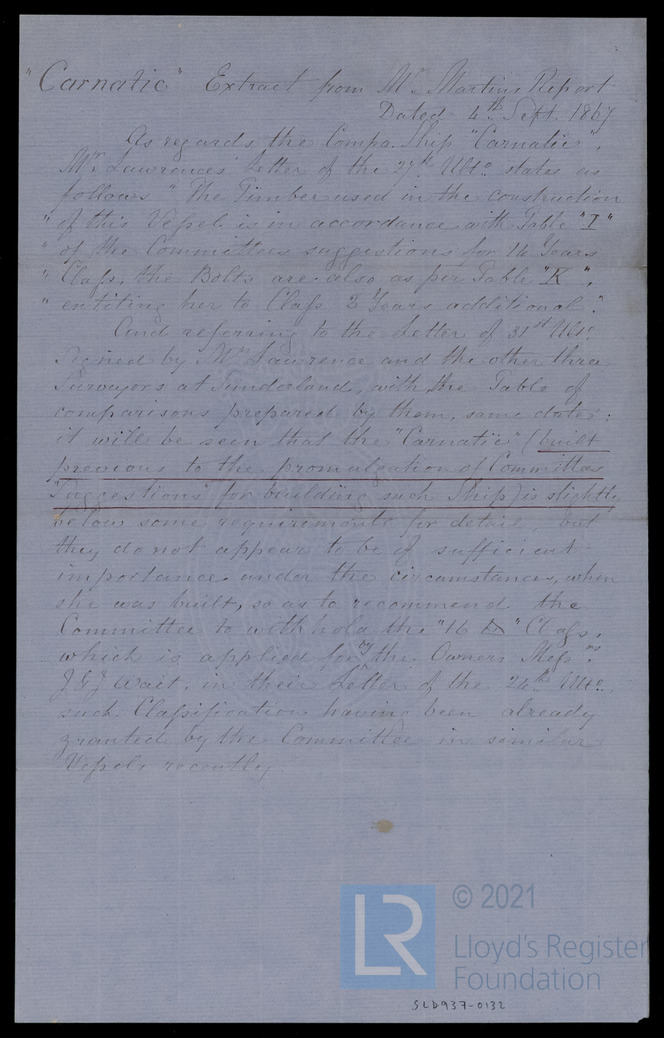 "Carnatic" Extract from Mr. Martins Report
Dated 4th Sept. 1867
As regards the Compo. Ship "Carnatic",
Mr. Lawrences' Letter of the 27th Ulto. states as
follows "The Timber used in the construction
" of this Vessel is in accordance with Table "I"
" of the Committees suggestions for 14 Years
" Class, the Bolts are also as per Table "K",
" entitling her to Class 2 Years additional".
And referring to the Letter of 31st Ulto.
signed by Mr. Lawrence and the other three
Surveyors at Sunderland, with the Table of
comparisons prepared by them, same date:
it will be seen that the "Carnatic" (built
previous to the promulgation of Committees
Suggestions for building such Ship) is slightly
below some requirements for detail, but
they do not appear to be of sufficient
importance under the circumstances, when
she was built, so as to recommend the
Committee to withhold the "16 A" Class,
which is applied for by the Owners Messrs.
Wait, in their Letter of the 24th Ulto.
such Classification having been already
granted by the Committee in similar
Vessels recently
© 2021
LR
Lloyd's Register
Foundation
SLD937-0132